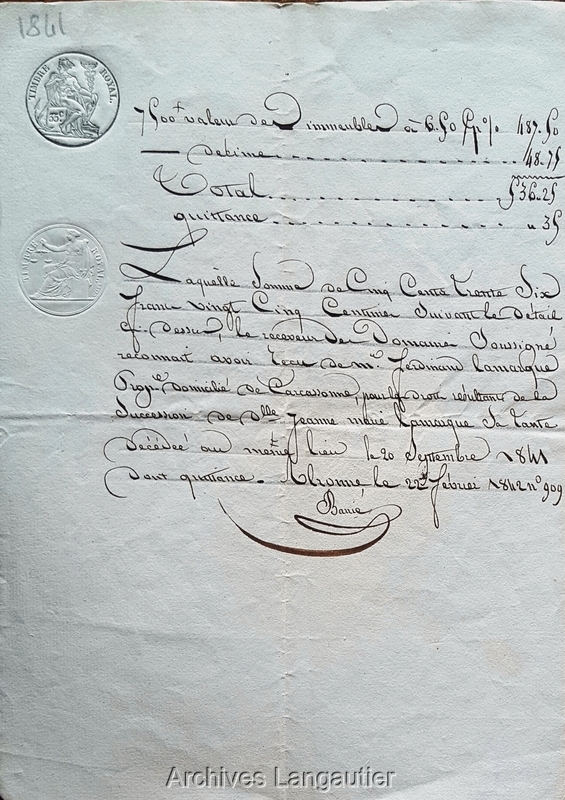 1841
TIMBRE ROYAL.
35c
7500f valeur des immeubles à 6.50 p% 487.50
— decime 48.75
Total 536.25
quittance " 35
TIMBRE ROYAL
Laquelle somme de Cinq Cents Trente Six
francs vingt Cinq Centimes suivant le détail
ci-dessus, le receveur des Domaines soussigné
reconnait avoir recu de mr. ferdinand Lamarque
Propre. domicilié de Carcassonne, pour les droits résultants de la
Succession de dlle. Jeanne marie Lamarque Sa tante
décédée au même lieu le 20 Septembre 1841
dont quittance. Alzonne le 22 février 1842 no 909
Archives Langautier